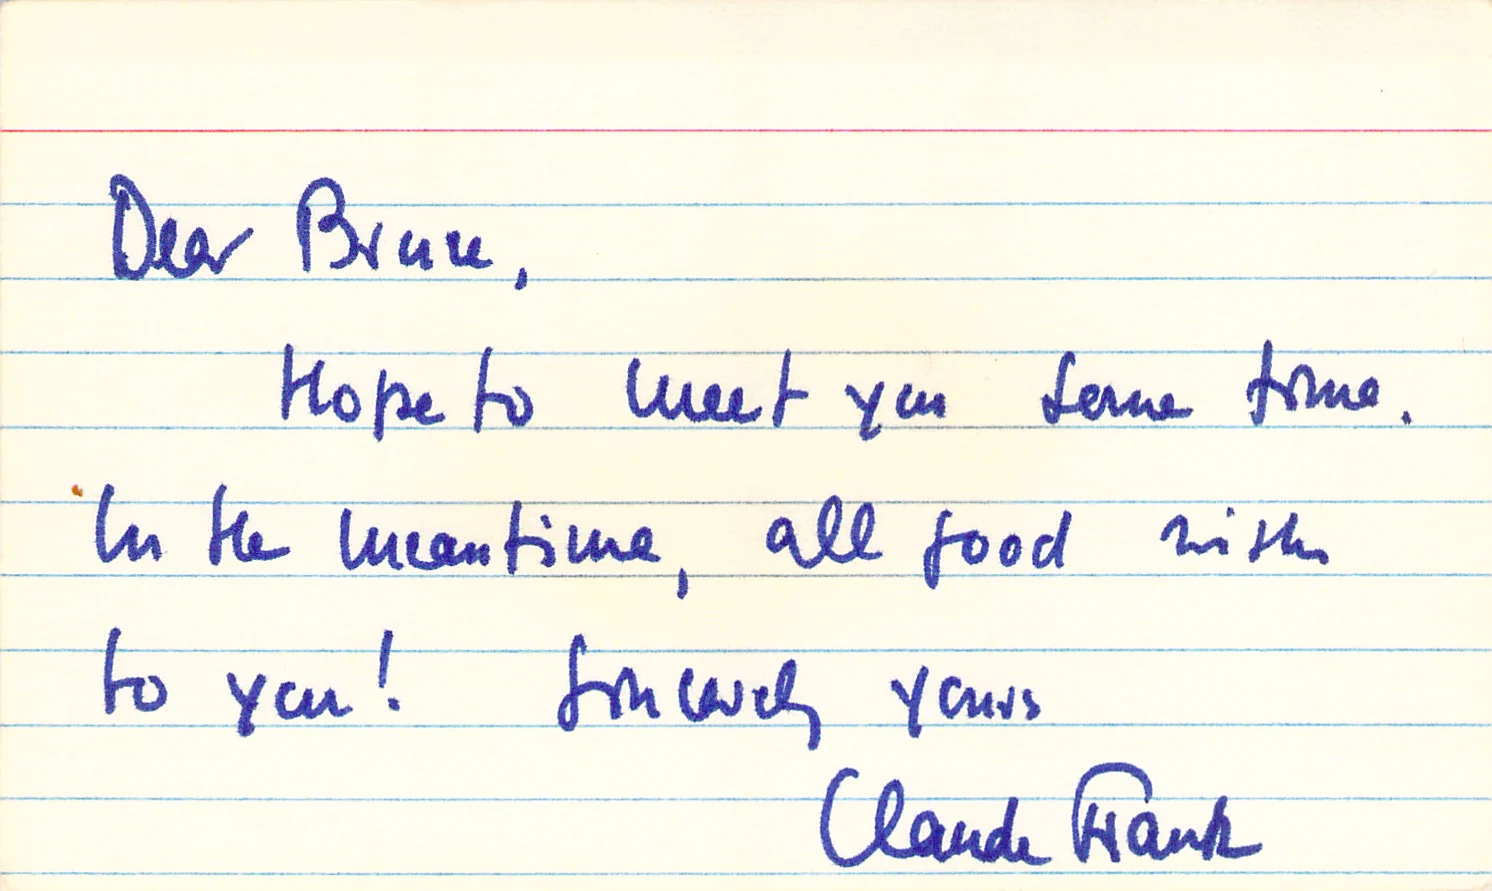 Dear Bruce,
Hope to meet you some time.
In the meantime, all good wishes
to you! Sincerely yours
Claude Frank